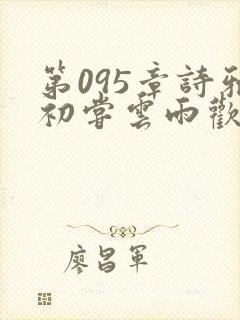 第095章詩雅
初嘗雲雨歡
廖昌軍